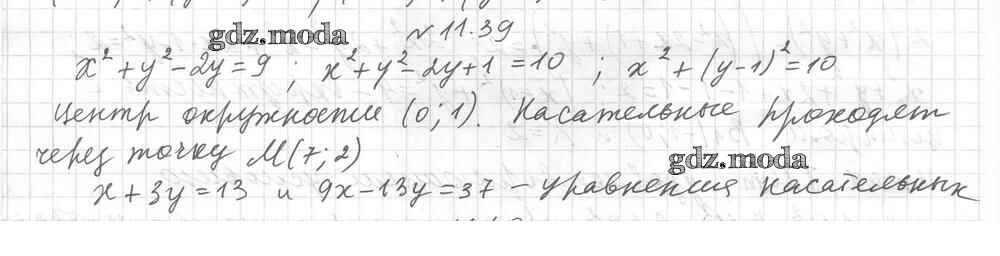 № 11.39
gdz.moda
x² + y² - 2y = 9 ; x² + y² - 2y + 1 = 10 ; x² + (y-1)² = 10
Центр окружности (0; 1). Касательные проходят
через точку M(7; 2)
gdz.moda
x + 3y = 13 и 9x - 13y = 37 - уравнения касательных